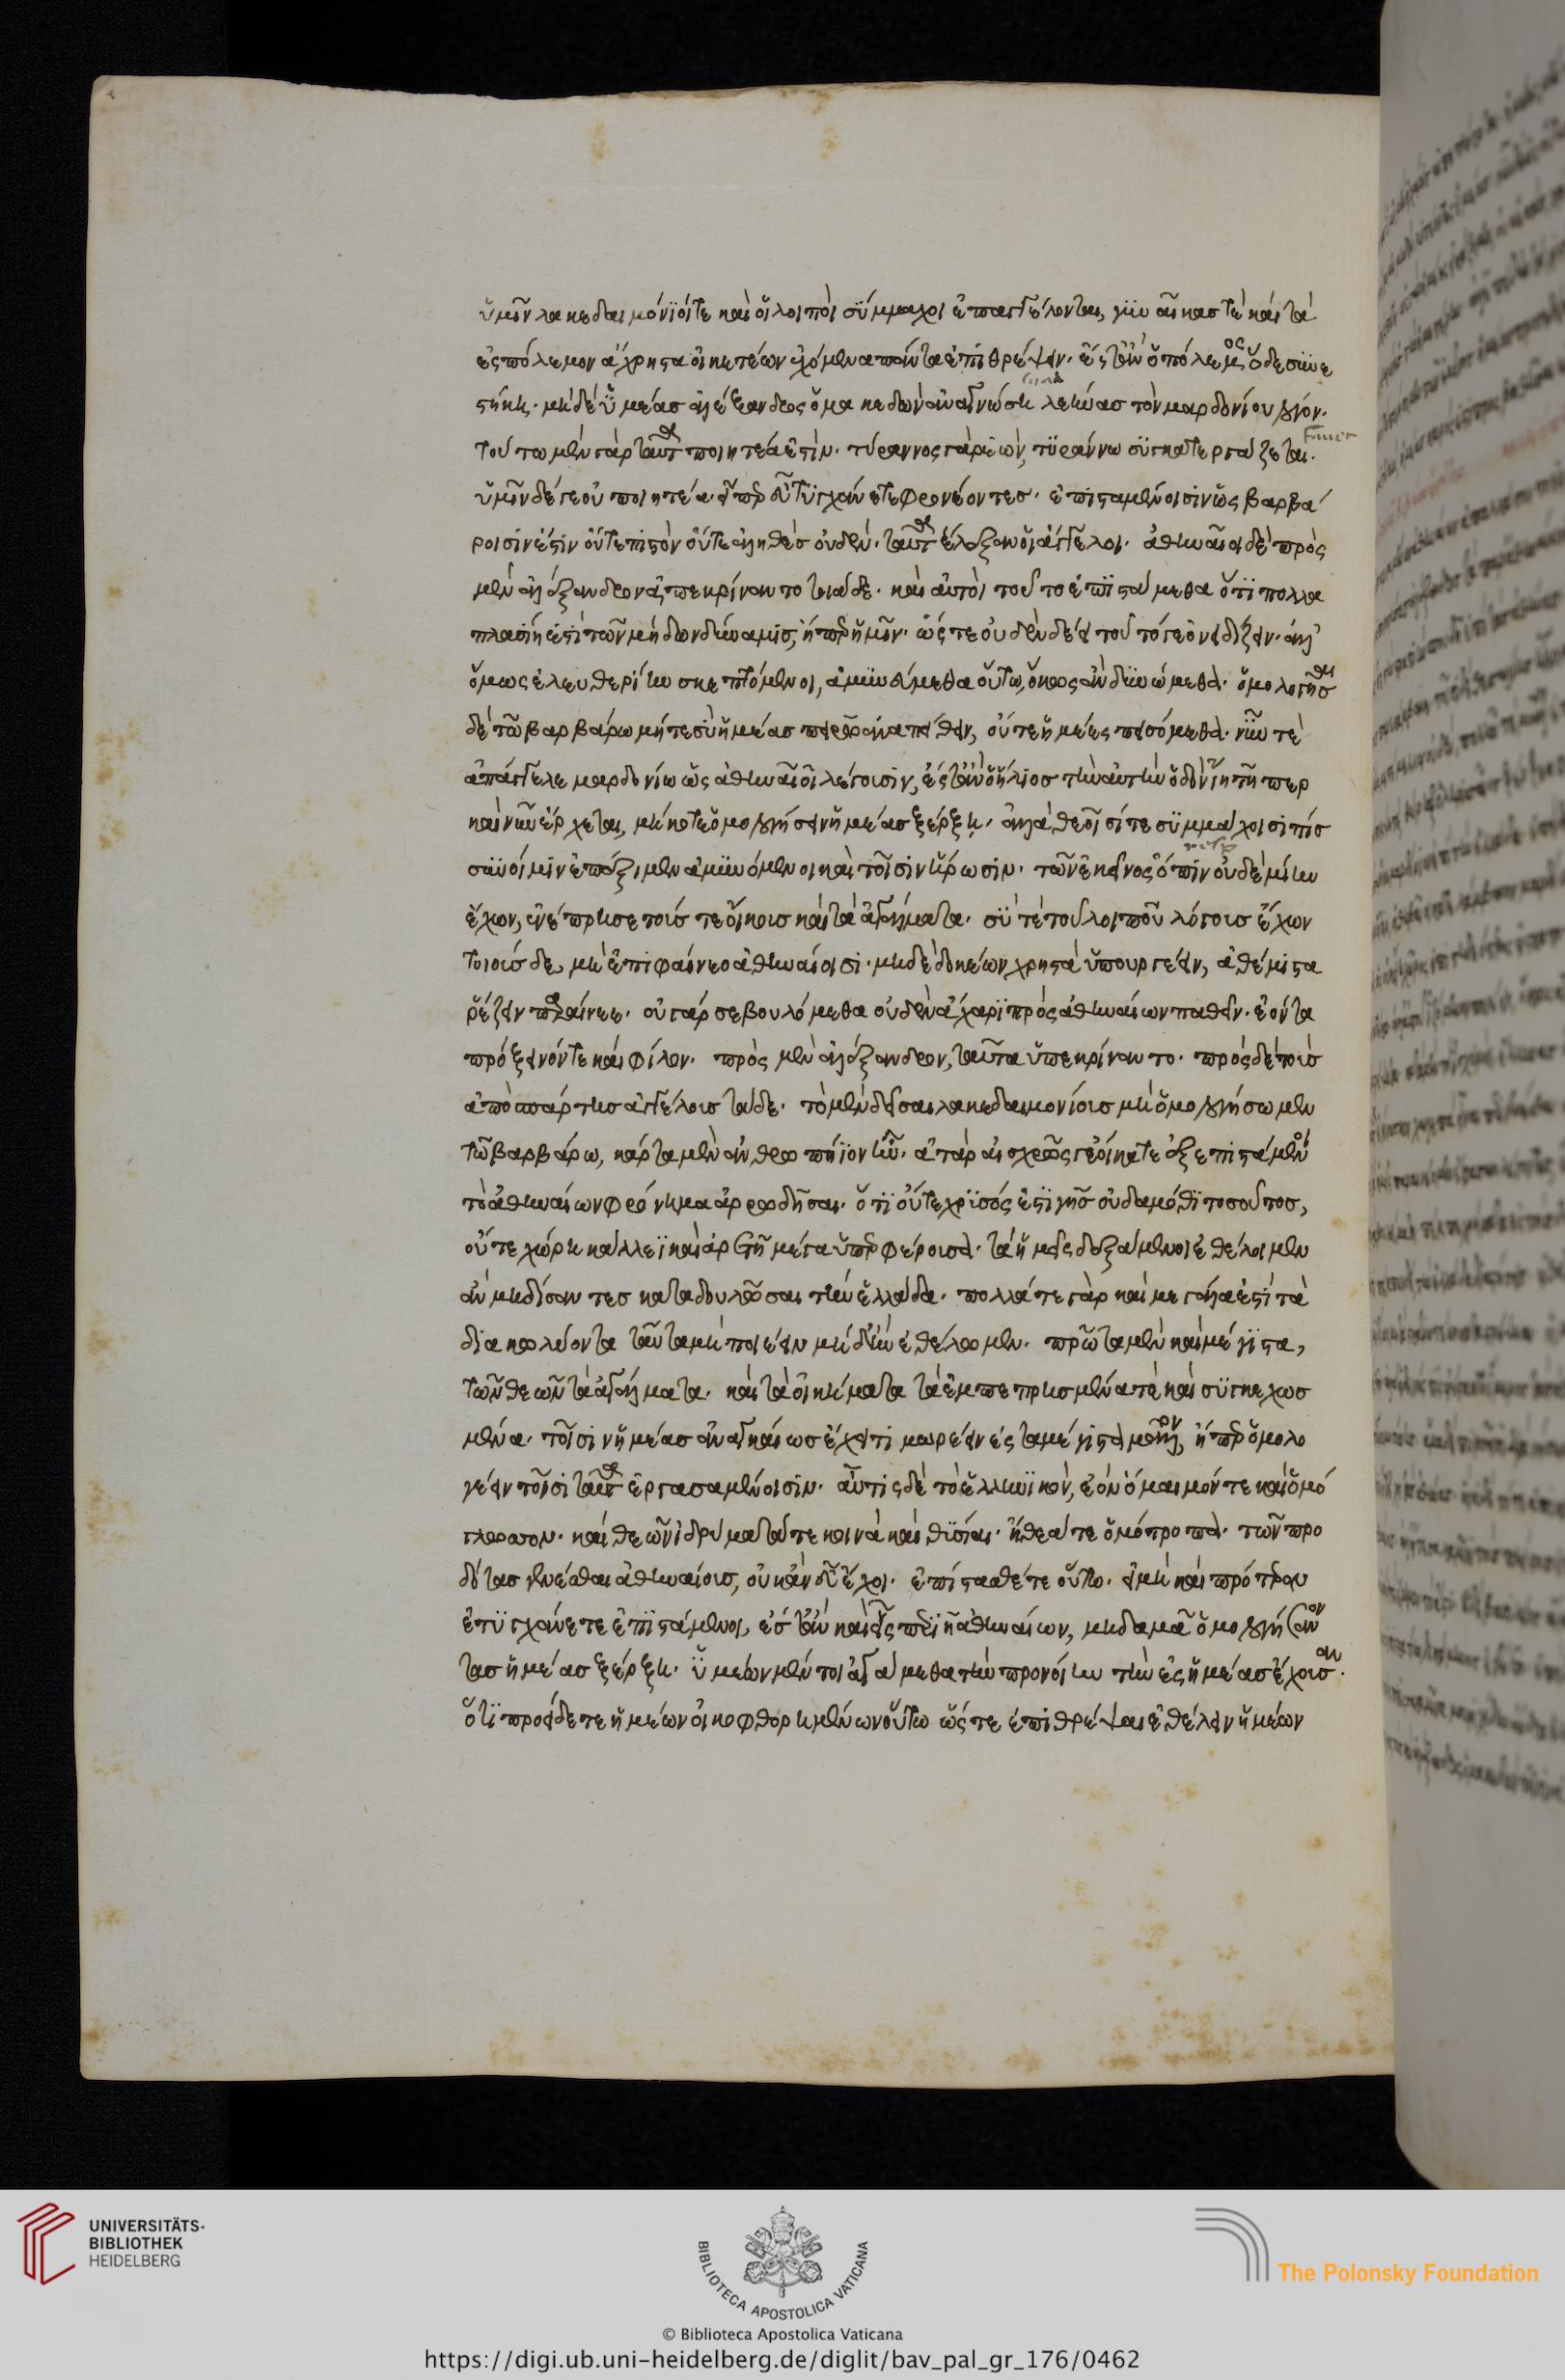 ὑμῖν λακεδαιμόνϊοί τε καὶ οἱ λοιποὶ σύμμαχοι ἐπαγγέλονται, γῦν αῖκάς τὲ καὶ τὰ
ἐς πόλεμον ἄχρηστα οἰκετέων ἐχόμενα πάντα ἐπιθρέψειν. ἔς τ' ἂν ὁ πόλεμος ὅδε συνε
στήκῃ. μὴ δὲ ὑμέας ἀλέξανδρος ὁ μακεδὼν ἀναγνώσῃ λεήνας τὸν μαρδονίου λόγον.
τούτω μὲν γὰρ ταῦτα ποιητέα ἐστὶν. τύραννος γὰρ ἐὼν, τυράννω συγκατεργάζεται.
ὑμῖν δέ γε οὐ ποιητέα. εἴπερ εὖ τυγχάνετε φρονέοντες. ἐπισταμένοισιν ὡς βαρβά
ροισίν ἐστιν οὔτε πιστὸν οὔτε ἀληθὲς οὐδέν. ταῦτα ἔλεξαν οἱ ἄγγελοι. ἀθηναῖοι δὲ πρὸς
μὲν ἀλέξανδρον ἀπεκρίναντο τάδε. καὶ αὐτοὶ τοῦτο ἐπιστάμεθα ὅτι πολλα
πλασίη ἐστὶ τῶν μήδων δύναμις, ἤπερ ἡμῖν. ὥς τε οὐδὲν δέει τοῦτό γε ὀνειδίζειν. ἀλλ'
ὅμως ἐλευθερίην σκεπτόμενοι, ἀμυνεύμεθα οὕτω, ὅκως ἂν δυνώμεθα. ὁμολογῆσαι
δὲ τῶ βαρβάρω μήτε σὺ ἡμέας πειρῶ ἀναπείθειν, οὔτε ἡμέες πεισόμεθα. νῦν τὲ
ἀπάγγελε μαρδονίω ὡς ἀθηναῖοι λέγουσιν, ἔς τ' ἂν ὁ ἥλιος τὴν αὐτὴν ὁδὸν ἴη τῆ περ
καὶ νῦν ἔρχεται, μή κοτε ὁμολογήσειν ἡμέας ξέρξῃ. ἀλλὰ θεοῖσί τε συμμάχοισι πίσ
συνοί μιν ἐπέξιμεν ἀμυνόμενοι καὶ τοῖσιν ἥρωσιν. τῶν ἐκεῖνος ὄπιν οὐδεμίην
ἔχων, ἐνέπρησε τούς τε οἴκους καὶ τὰ ἀγάλματα. σύ τε τοῦ λοιποῦ λόγους ἔχων
τοιούσδε, μὴ ἐπιφαίνεο ἀθηναίοισι. μηδὲ δοκέων χρηστὰ ὑπουργέειν, ἀθέμιστα
ῥέζειν παραίνεε. οὐ γάρ σε βουλόμεθα οὐδὲν ἄχαρι πρὸς ἀθηναίων παθεῖν. ἐόντα
πρόξεινόν τε καὶ φίλον. πρὸς μὲν ἀλέξανδρον, ταῦτα ὑπεκρίναντο. πρὸς δὲ τοὺς
ἀπὸ σπάρτης ἀγγέλους τάδε. τὸ μὲν δεῖσαι λακεδαιμονίους μὴ ὁμολογήσωμεν
τῶ βαρβάρω, κάρτα μὲν ἀνθρωπήϊον ἦν. ἀτὰρ αἰσχρῶς γε οἴκατε ἐξεπιστάμενοι
τὸ ἀθηναίων φρόνημα ἀρρωδῆσαι. ὅτι οὔτε χρυσός ἐστι γῆς οὐδαμόθι τοσοῦτος,
οὔτε χώρη κάλλεϊ καὶ ἀρετῆ μέγα ὑπερφέρουσα. τὰ ἡμεῖς δεξάμενοι ἐθέλοιμεν
ἂν μηδίσαντες καταδουλῶσαι τὴν ἑλλάδα. πολλά τε γὰρ καὶ μεγάλα ἐστὶ τὰ
διακωλύοντα ταῦτα μὴ ποιέειν μηδ' ἢν ἐθέλωμεν. πρῶτα μὲν καὶ μέγιστα,
τῶν θεῶν τὰ ἀγάλματα. καὶ τὰ οἰκήματα τὰ ἐμπεπρησμένα τὲ καὶ συγκεχωσ
μένα. τοῖσιν ἡμέας ἀναγκαίως ἔχει τιμωρέειν ἐς τὰ μέγιστα μᾶλλον, ἤπερ ὁμολο
γέειν τοῖσι ταῦτα ἐργασαμένοισιν. αὖτις δὲ τὸ ἑλληνικὸν, ἐὸν ὅμαιμόν τε καὶ ὁμό
γλωσσον. καὶ θεῶν ἱδρύματά τε κοινὰ καὶ θυσίαι. ἤθεά τε ὁμότροπα. τῶν προ
δότας γενέσθαι ἀθηναίους, οὐκ ἂν εὖ ἔχοι. ἐπίστασθέ τε οὕτω. εἰ μὴ καὶ πρότερον
ἐτυγχάνετε ἐπιστάμενοι, ἔς τ' ἂν καὶ εἷς περιῆ ἀθηναίων, μηδαμᾶ ὁμολογήσον
τας ἡμέας ξέρξῃ. ὑμέων μέντοι ἀγάμεθα τὴν προνοίην τὴν ἐς ἡμέας ἔχουσαν.
ὅτι προείδετε ἡμέων οἰκοφθορημένων οὕτω ὥς τε ἐπιθρέψαι ἐθέλειν ἡμέων
UNIVERSITÄTS-
BIBLIOTHEK
HEIDELBERG
BIBLIOTECA APOSTOLICA VATICANA
The Polonsky Foundation
© Biblioteca Apostolica Vaticana
https://digi.ub.uni-heidelberg.de/diglit/bav_pal_gr_176/0462